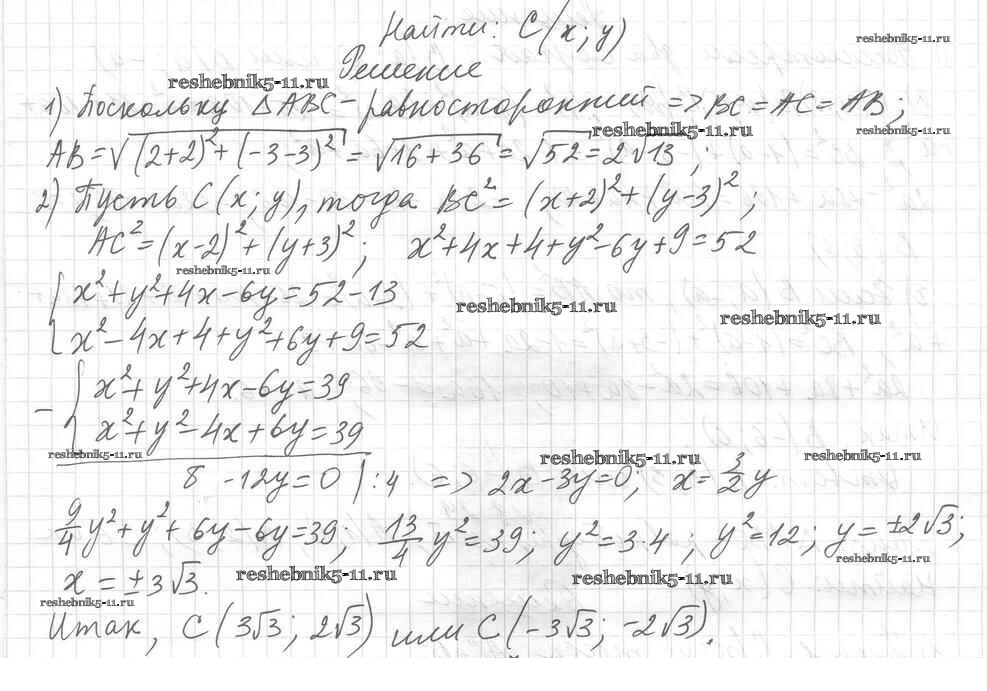 Найти: C(x; y)
reshebnik5-11.ru
Решение
reshebnik5-11.ru
1) Поскольку △ABC – равносторонний => BC = AC = AB;
reshebnik5-11.ru reshebnik5-11.ru
AB = √((2+2)² + (-3-3)²) = √(16+36) = √52 = 2√13;
2) Пусть C(x; y), тогда BC² = (x+2)² + (y-3)²;
AC² = (x-2)² + (y+3)²; x²+4x+4+y²-6y+9=52
reshebnik5-11.ru
{ x²+y²+4x-6y=52-13
reshebnik5-11.ru reshebnik5-11.ru
x²-4x+4+y²+6y+9=52
- { x²+y²+4x-6y=39
x²+y²-4x+6y=39
reshebnik5-11.ru reshebnik5-11.ru reshebnik5-11.ru
8 -12y=0 | :4 => 2x-3y=0; x=3/2 y
9/4 y²+y²+6y-6y=39; 13/4 y²=39; y²=3·4; y²=12; y=±2√3;
reshebnik5-11.ru
x=±3√3.
reshebnik5-11.ru reshebnik5-11.ru
reshebnik5-11.ru
Итак, C(3√3; 2√3) или C(-3√3; -2√3).